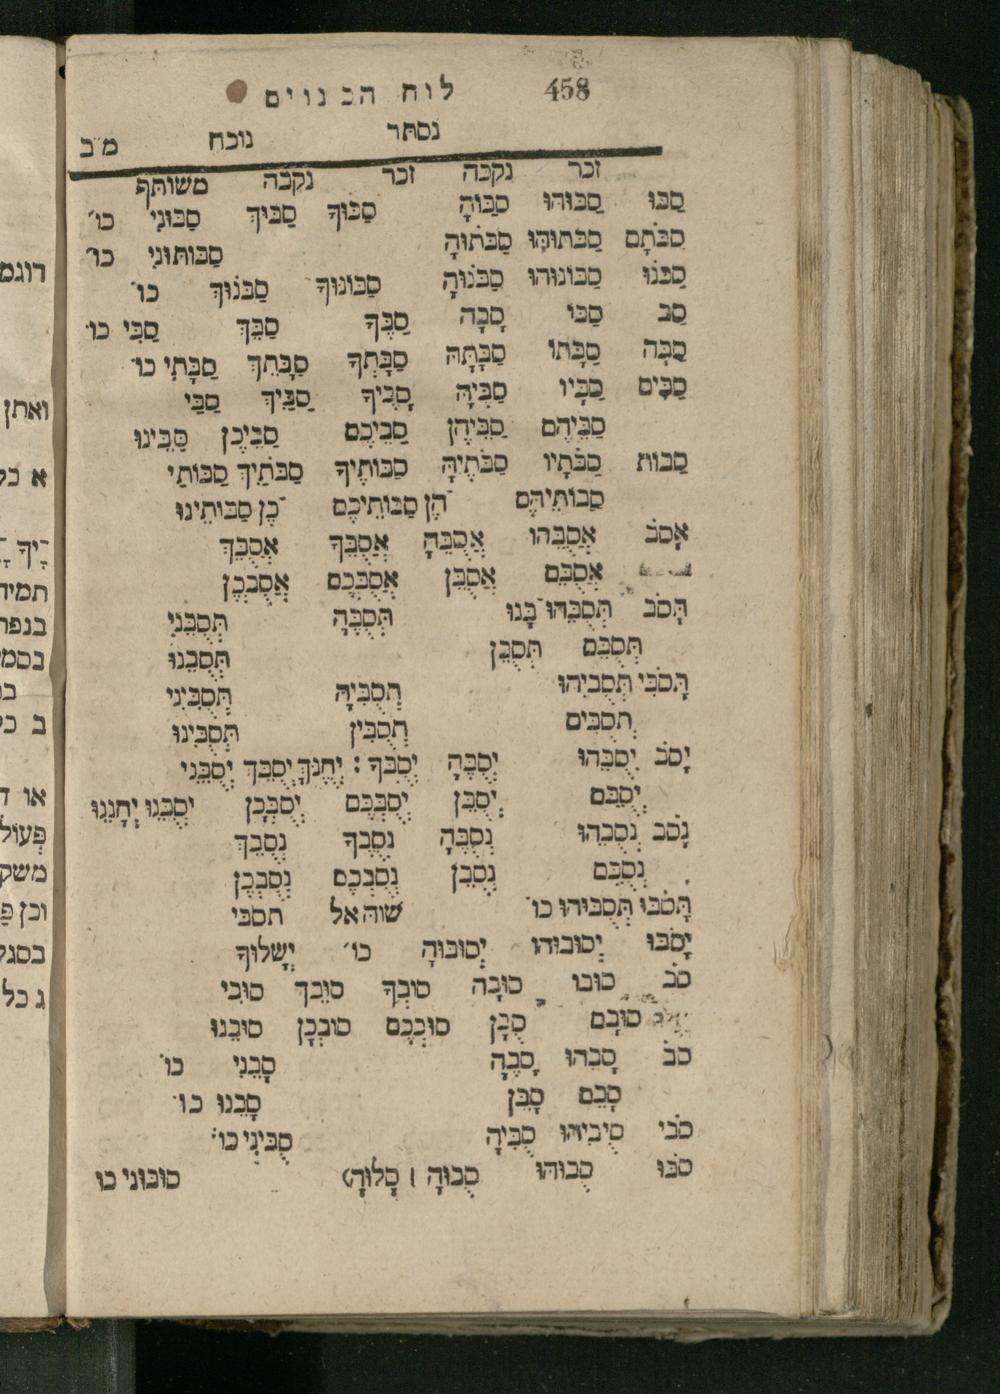 458 לוח הכנוים
נסתר נוכח מ״ב
זכר נקבה זכר נקבה משותף
סַבּוּ סַבּוּהוּ סַבּוּהָ סַבּוּךָ סַבּוּךְ סַבּוּנִי כו׳
סַבֹּתֶם סַבֹּתוּהוּ סַבֹּתוּהָ סַבּוֹתוּנִי כו׳
סַבֹּנוּ סַבּוֹנוּהוּ סַבֹּנוּהָ סַבּוֹנוּךָ סַבֹּנוּךְ כו׳
סַב סַבּוֹ סַבָּהּ סַבְּךָ סַבֵּךְ סַבִּי כו׳
סַבָּה סַבָּתוֹ סַבָּתָהּ סַבָּתְךָ סַבָּתֵךְ סַבָּתִי כו׳
סַבִּים סַבָּיו סַבֶּיהָ סַבֶּיךָ סַבַּיִךְ סַבַּי
סַבֵּיהֶם סַבֵּיהֶן סַבֵּיכֶם סַבֵּיכֶן סַבֵּינוּ
סַבּוֹת סַבֹּתָיו סַבֹּתֶיהָ סַבּוֹתֶיךָ סַבֹּתַיִךְ סַבּוֹתַי
סַבּוֹתֵיהֶם ־הֶן סַבּוֹתֵיכֶם ־כֶן סַבּוֹתֵינוּ
אָסֹב אֲסֻבֵּהוּ אֲסֻבֶּהָ אֲסֻבְּךָ אֲסֻבֵּךְ
אֲסֻבֵּם אֲסֻבֵּן אֲסֻבְּכֶם אֲסֻבְּכֶן
תָּסֹב תְּסֻבֵּהוּ־בֶּנּוּ תְּסֻבֶּהָ תְּסֻבֵּנִי
תְּסֻבֵּם תְּסֻבֵּן תְּסֻבֵּנוּ
תָּסֹבִּי תְּסֻבִּיהוּ תְּסֻבִּיהָ תְּסֻבִּינִי
תְסֻבִּים תְסֻבִּין תְּסֻבִּינוּ
יָסֹב יְסֻבֵּהוּ יְסֻבֶּהָ יְסֻבְּךָ : יָחְנְךָ יְסֻבֵּךְ יְסֻבֵּנִי
יְסֻבֵּם יְסֻבֵּן יְסֻבְּכֶם יְסֻבְּכֶן יְסֻבֵּנוּ יְחָנֵנוּ
נָסֹב נְסֻבֵּהוּ נְסֻבֶּהָ נְסֻבְּךָ נְסֻבֵּךְ
נְסֻבֵּם נְסֻבֵּן נְסֻבְּכֶם נְסֻבְּכֶן
תָּסֹבּוּ תְּסֻבּוּהוּ כו׳ שוה אל תסבי
יָסֹבּוּ יְסוּבּוּהוּ יְסוּבּוּהָ כו׳ יְשָׁלּוּךָ
סֹב סוּבּוֹ סוּבָּהּ סוּבְּךָ סוּבֵּךְ סוּבִּי
סוּבָּם סֻבָּן סוּבְּכֶם סוּבְּכֶן סוּבֵּנוּ
סֹב סֻבֵּהוּ סֻבֶּהָ סֻבֵּנִי כו׳
סֻבֵּם סֻבֵּן סֻבֵּנוּ כו׳
סֹבִּי סֻבִּיהוּ סֻבִּיהָ סֻבִּינִי כו׳
סֹבּוּ סֻבּוּהוּ סֻבּוּהָ (סָלּוּהָ) סוּבּוּנִי כו
דוגמ
ואתן
א כל
תמיד
בנפר
בסמ
ב כל
או ד
פְּעוֹל
משק
וכן פַּ
בסגל
ג כל